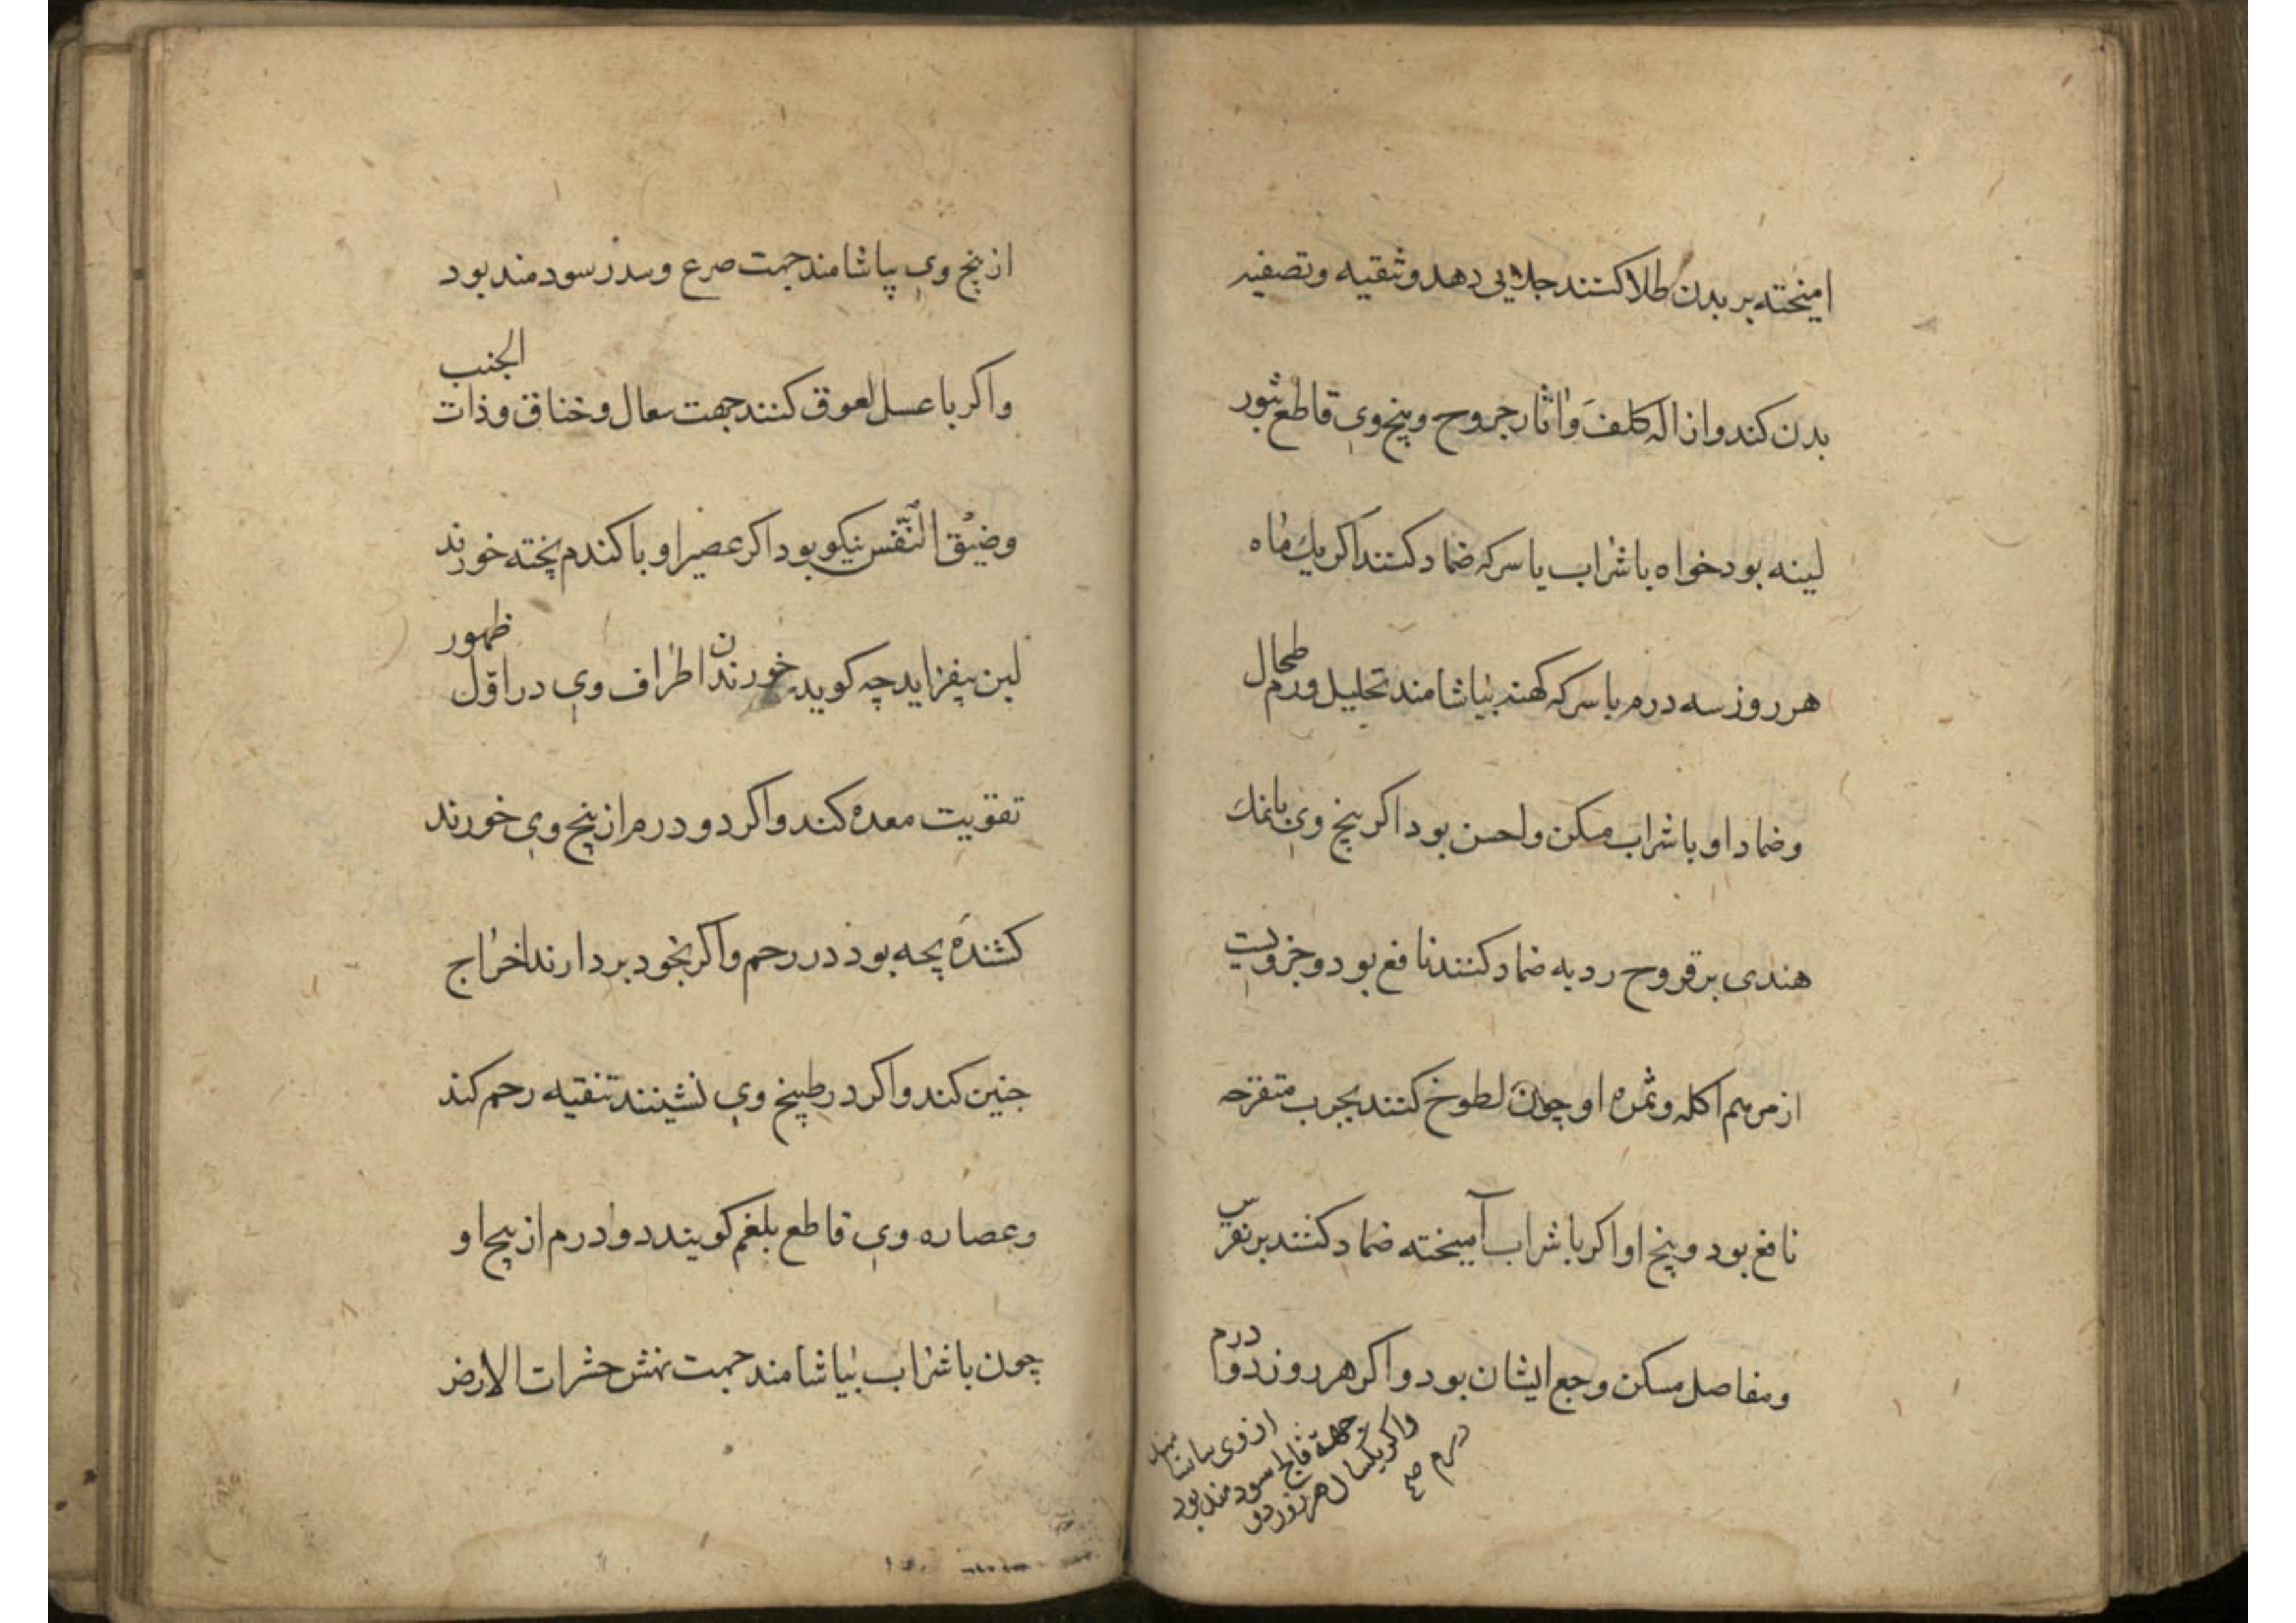 امیخته بر بدن طلا کنند جلایی دهد و تنقیه و تصفیه
بدن کند و ازاله کلف و اثار جروح و بیخ وی قاطع بثور
لینه بود خواه با شراب یا سرکه ضماد کنند اکر یك ماه
هر روز سه درم با سرکه کهنه بیاشامند تحلیل ورم طحال
و ضماد او با شراب مسکن و احسن بود اکر بیخ وی با نمك
هندی بر قروح ردیه ضماد کنند نافع بود و جزویست
از مرهم اکله و ثمره او چون لطوخ کنند بجرب متقرحه
نافع بود و بیخ او اکر با شراب آمیخته ضماد کنند بر نقرس
و مفاصل مسکن وجع ایشان بود و اکر هر روز دو درم
از وی بیاشامند
جهة فالج سودمند بود
واکر یکسال هر روز دو
درم
از بیخ وی بیاشامند جهت صرع و سدر سودمند بود
واکر با عسل لعوق کنند جهت سعال و خناق و ذات الجنب
و ضیق النفس نیکو بود اکر عصیر او با کندم پخته خورند
لبن بیفزاید چه کویند خوردن اطراف وی در اوّل ظهور
تقویت معده کند واکر دو درم از بیخ وی خورند
کشندهٔ بچه بود در رحم واکر بخود بردارند اخراج
جنین کند واکر در طبیخ وی نشینند تنقیه رحم کند
و عصاره وی قاطع بلغم کویند دو درم از بیخ او
چون با شراب بیاشامند جهت نهش حشرات الارض